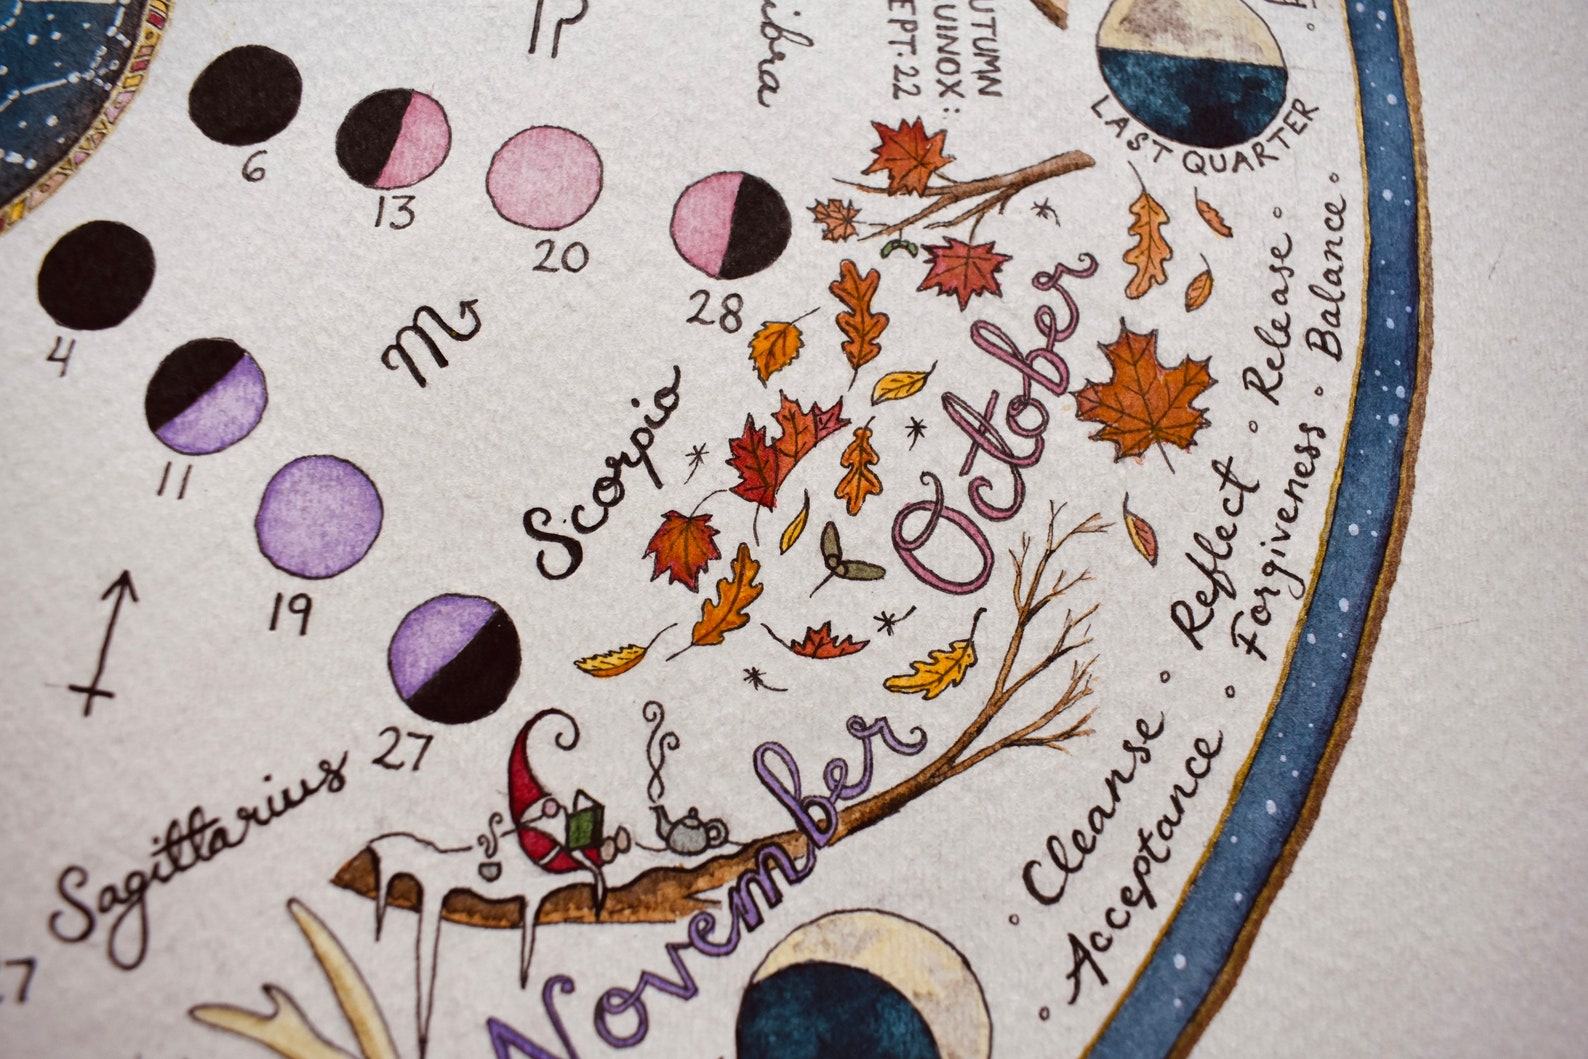 ibra
UTUMN
UINOX:
EPT. 22
LAST QUARTER
6
13
20
28
October
4
11
19
27
Scorpio
November
Sagittarius
7
° Cleanse ° Reflect ° Release °
° Acceptance ° Forgiveness ° Balance °